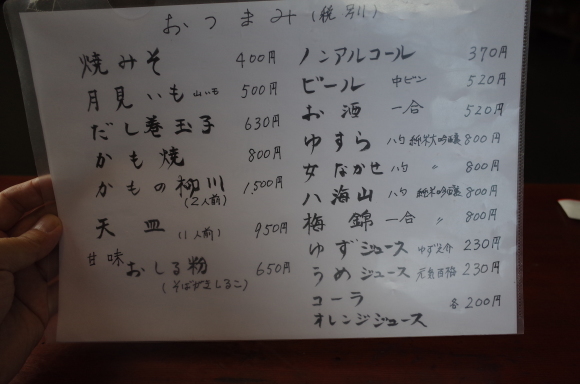 おつまみ(税別)
焼みそ 400円
月見いも 山いも 500円
だし巻玉子 630円
かも焼 800円
かもの柳川 1,500円
(2人前)
天皿 (1人前) 950円
甘味
おしる粉 650円
(そばがきしるこ)
ノンアルコール 370円
ビール 中ビン 520円
お酒 一合 520円
ゆすら 八勺 純米大吟醸 800円
女なかせ 八勺 〃 800円
八海山 八勺 純米吟醸 800円
梅錦 一合 〃 800円
ゆずジュース 230円
うめジュース 230円
コーラ
各200円
オレンジジュース